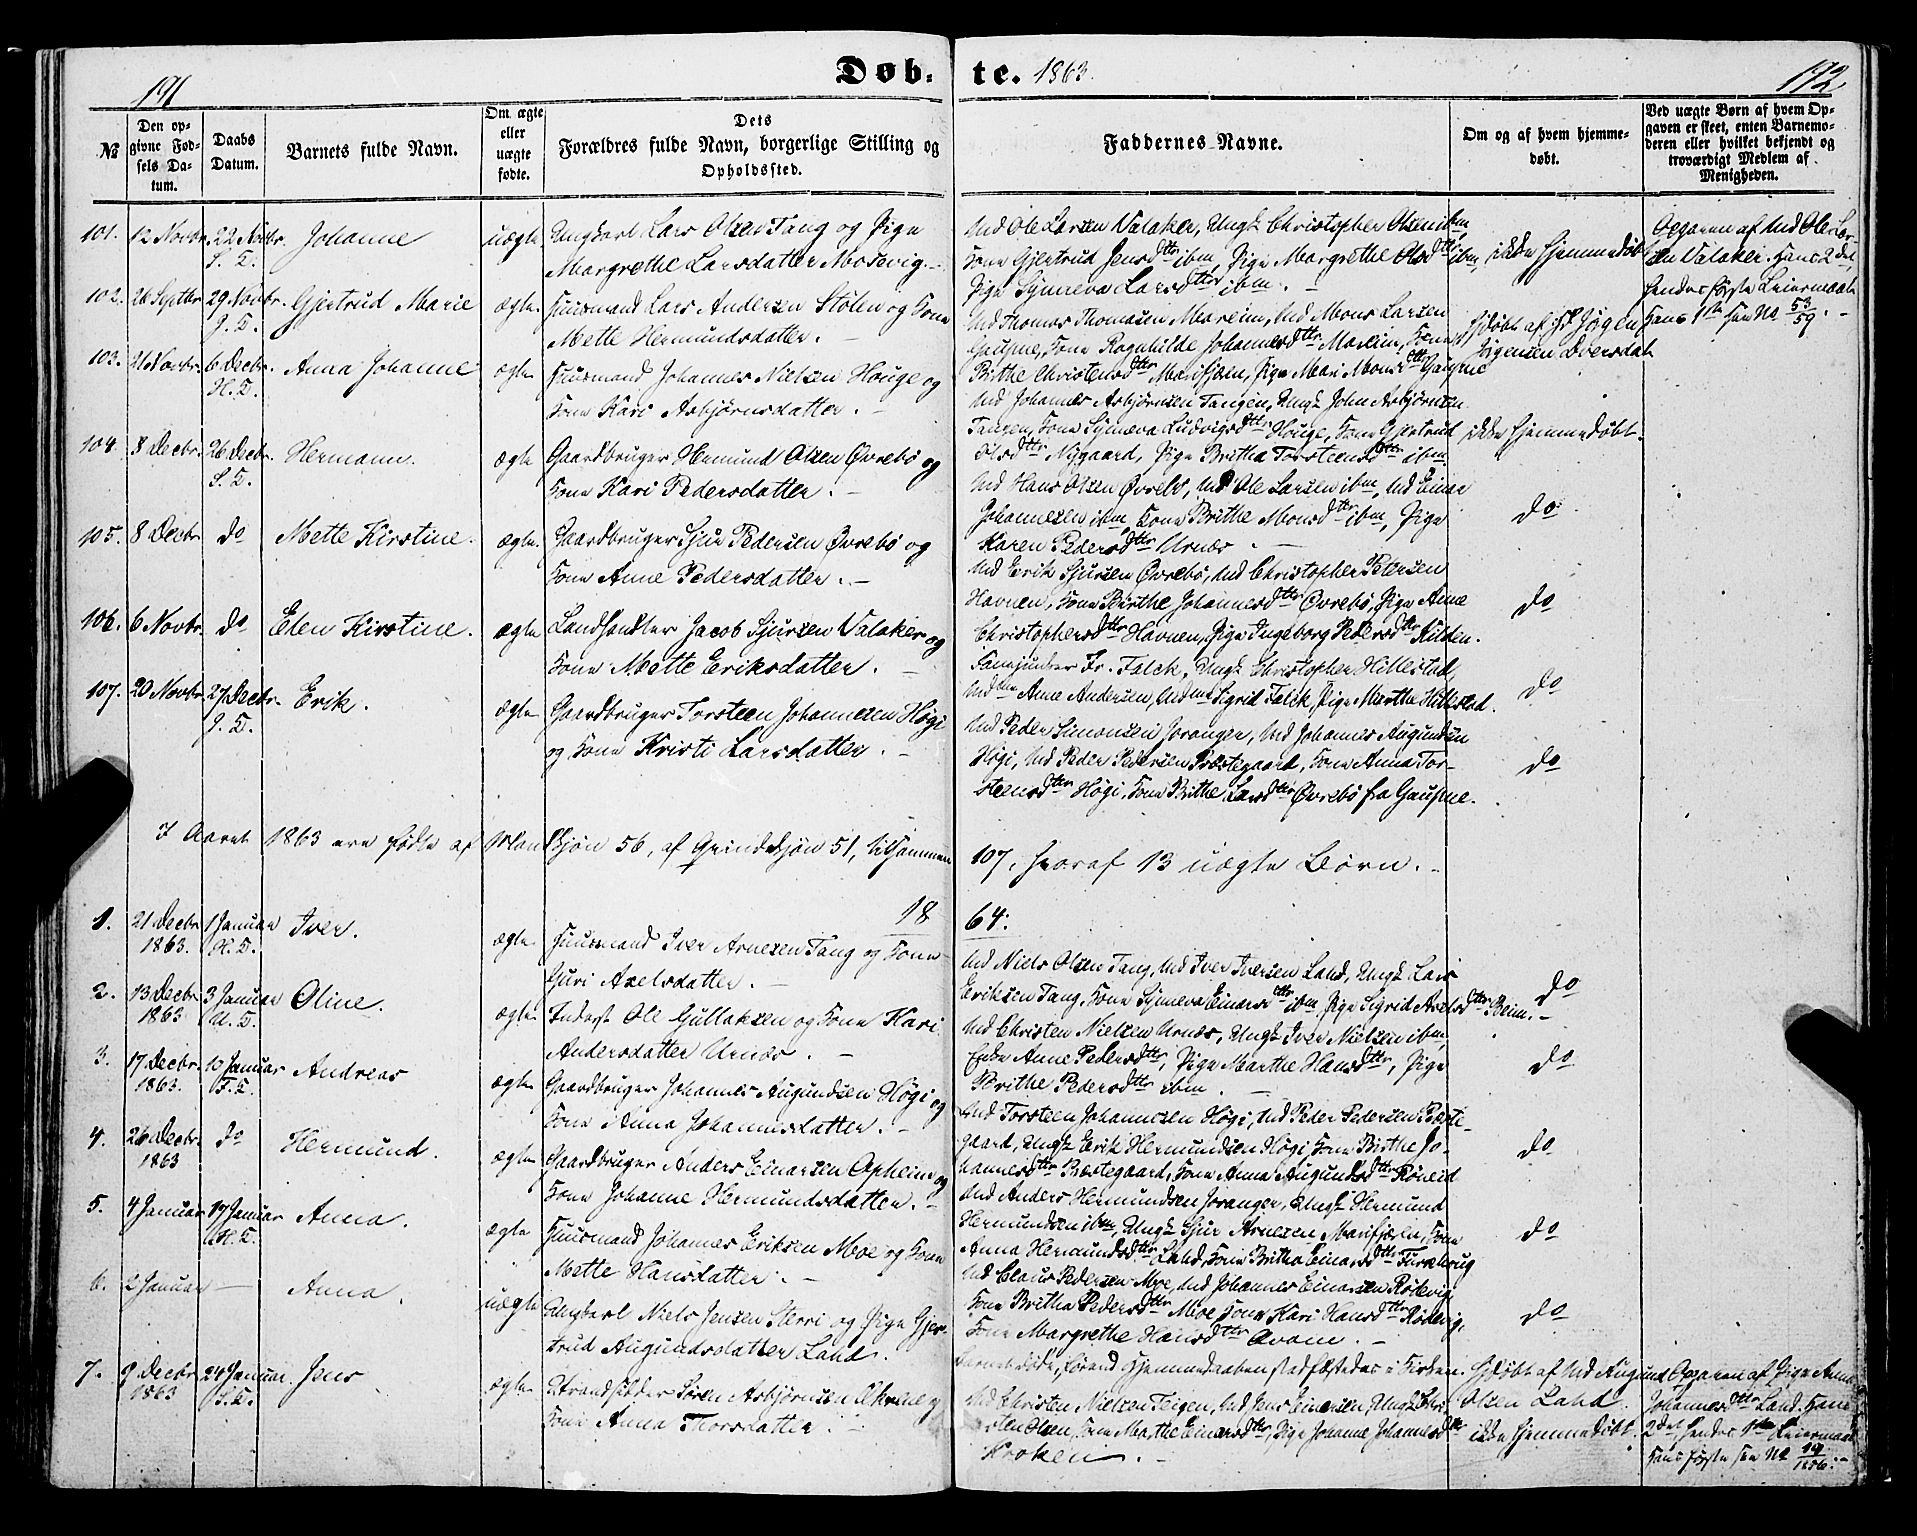 191
Døb-
te. 1863.
192
№
Den op-
givne Fød-
sels Da-
tum.
Daabs
Datum.
Barnets fulde Navn.
Om ægte
eller
uægte
fødte.
Dets
Forældres fulde Navn, borgerlige Stilling og
Opholdssted.
Faddernes Navne.
Om og af hvem hjemme-
døbt.
Ved uægte Børn af hvem Op-
gaven er skeet, enten Barnemo-
deren eller hvilket bekjendt og
troværdigt Medlem af
Menigheden.
101. 12 Novbr. 22 Novbr. Johanne uægte Ungkarl Lars Olsen Tang og Pige
S. T. Margrethe Larsdatter Modevig.
Md Ole Larsen Valaker, Ungk Christopher Olsen ibm,
Kone Gjertrud Jensdttr ibm, Pige Margrethe Olsdttr ibm,
Pige Synneva Larsdttr ibm.
ikke hjemmedøbt
Opgaven af Md Ole Lar-
sen Valaker. Hans 2det,
hendes første Leiermaal.
Hans 1ste see № 53/59.
102. 26 Septbr. 29 Novbr. Gjertrud Marie ægte Huusmand Lars Andersen Stølen og Kone
J. T. Mette Hermundsdatter.
Md Thomas Thomasen Moreim, Md Mons Larsen
Gaupne, Kone Ragnhilde Johannesdttr Moreim, Kone
Brithe Christensdttr Marifjæren, Pige Mari Monsdttr Gaupne
Hjdøbt af Sk Jørgen
Jørgensen Dversdal
103. 21 Novbr. 6 Decbr. Anna Johanne ægte Huusmand Johannes Nielsen Houge og
H. T. Kone Kari Asbjørnsdatter.
Md Johannes Asbjørnsen Tangen, Ungk John Asbjørnsen
Tangen, Kone Synneva Ludvigsdttr Houge, Kone Gjertrud
Olsdttr Nygaard, Pige Britha Torsteensdttr ibm.
ikke hjemmedøbt.
104. 8 Decbr. 26 Decbr. Hermann. ægte Gaardbruger Hermund Olsen Øvrebø og
S. T. Kone Kari Pedersdatter.
Md Hans Olsen Øvrebø, Md Ole Larsen ibm, Md Einar
Johannesen ibm, Kone Brithe Monsdttr ibm, Pige
Karen Pedersdttr Urnæs.
do
105. 8 Decbr do Mette Kirstine. ægte. Gaardbruger Sjur Pedersen Øvrebø og
Kone Anne Pedersdatter.
Md Erik Sjursen Øvrebø, Md Christopher Petersen
Havnen, Kone Birthe Johannesdttr Øvrebø, Pige Anne
Christophersdttr Havnen, Pige Ingeborg Pedersdttr Kilden.
do
106. 6 Novbr. do Eden Kirstine. ægte Landhandler Jacob Sjursen Valaker og
Kone Mette Eriksdatter.
Fr. Falck, Ungk Christopher Hillestad,
Anne Andersen, Sigrid Falck, Pige Marthe Hillestad.
do
107. 20 Novbr. 27 Decbr. Erik. ægte Gaardbruger Torsteen Johannesen Høgi
J. T. og Kone Kristi Larsdatter.
Md Peder Simonsen Joranger, Md Johannes Augundsen
Høgi, Md Peder Pedersen Præstegaard, Kone Anna Tor-
steensdttr Høgi, Kone Brithe Larsdttr Øvrebø fra Gaupne.
do
I Aaret 1863 ere fødte af Mandkjøn 56, af Qvindekjøn 51, tilsammen
107, hvoraf 13 uægte Børn.
18
64:
1. 21 Decbr 1 Januar Iver. ægte Huusmand Iver Arnesen Tang og Kone
1863. H. T. Guri Axelsdatter.
Md Niels Olsen Tang, Md Iver Iversen Land, Ungk Lars
Eriksen Tang, Kone Synneva Einarsdttr ibm, Pige Sigrid Axelsdttr Beim.
do
2. 13 Decbr 3 Januar Oline. ægte Inderst Ole Gullaksen og Kone Kari
1863 H. T. Andersdatter Urnæs.
Md Christen Nielsen Urnæs, Ungk Iver Nielsen ibm,
Enke Anne Pedersdttr, Pige Marthe Hansdttr, Pige
Brithe Pedersdttr ibm.
do
3. 17 Decbr 10 Januar Andreas ægte Gaardbruger Johannes Augundsen Høgi og
1863. F. T. Kone Anna Johannesdatter.
Md Torsteen Johannesen Høgi, Md Peder Pedersen Præste-
gaard, Ungk Erik Hermundsen Høgi, Kone Birthe Jo-
hannesdttr Præstegaard, Kone Anna Augundsdttr Røneid
do
4. 26 Decbr. do Hermund. ægte Gaardbruger Anders Einarsen Opheim og
1863 Kone Johanne Hermundsdatter.
Md Anders Hermundsen Joranger, Ungk Hermund
Hermundsen ibm, Ungk Sjur Arnesen Marifjæren, Kone
Anna Hermundsdttr Land, Kone Britha Einarsdttr
do
5. 4 Januar 17 Januar Anna. ægte Huusmand Johannes Eriksen Moe og Kone
H. T. Mette Hansdatter.
Md Claus Pedersen Moe, Md Johannes Einarsen Rødevig,
Kone Britha Pedersdttr Moe, Kone Kari Hansdttr Rødevig,
Kone Margrethe Hansdttr
do
6. 2 Januar — Anna. uægte Ungkarl Niels Jensen Sterri og Pige Gjer-
trud Augundsdatter Land.
Barnet døde, forend Hjemmedaaben stadfæstedes i Kirken.
Hjdøbt af Md Augund
Olsen Land.
Opgaven af Pige Anna
Johannesdttr Land. Hans
2det, hendes 1ste Leiermaal
Hans første see № 19/1856.
7. 9 Decbr 24 Januar. Jens ægte Strandsidder Søren Asbjørnsen og
1863 S. T. Kone Anna Thorsdatter.
Md Christen Nielsen Teigen, Md Jens Einersen, Ungk Chri-
sten Olsen, Kone Marthe Einersdttr, Pige Johanne Johannesdttr
Kroken.
ikke hjemmedøbt.